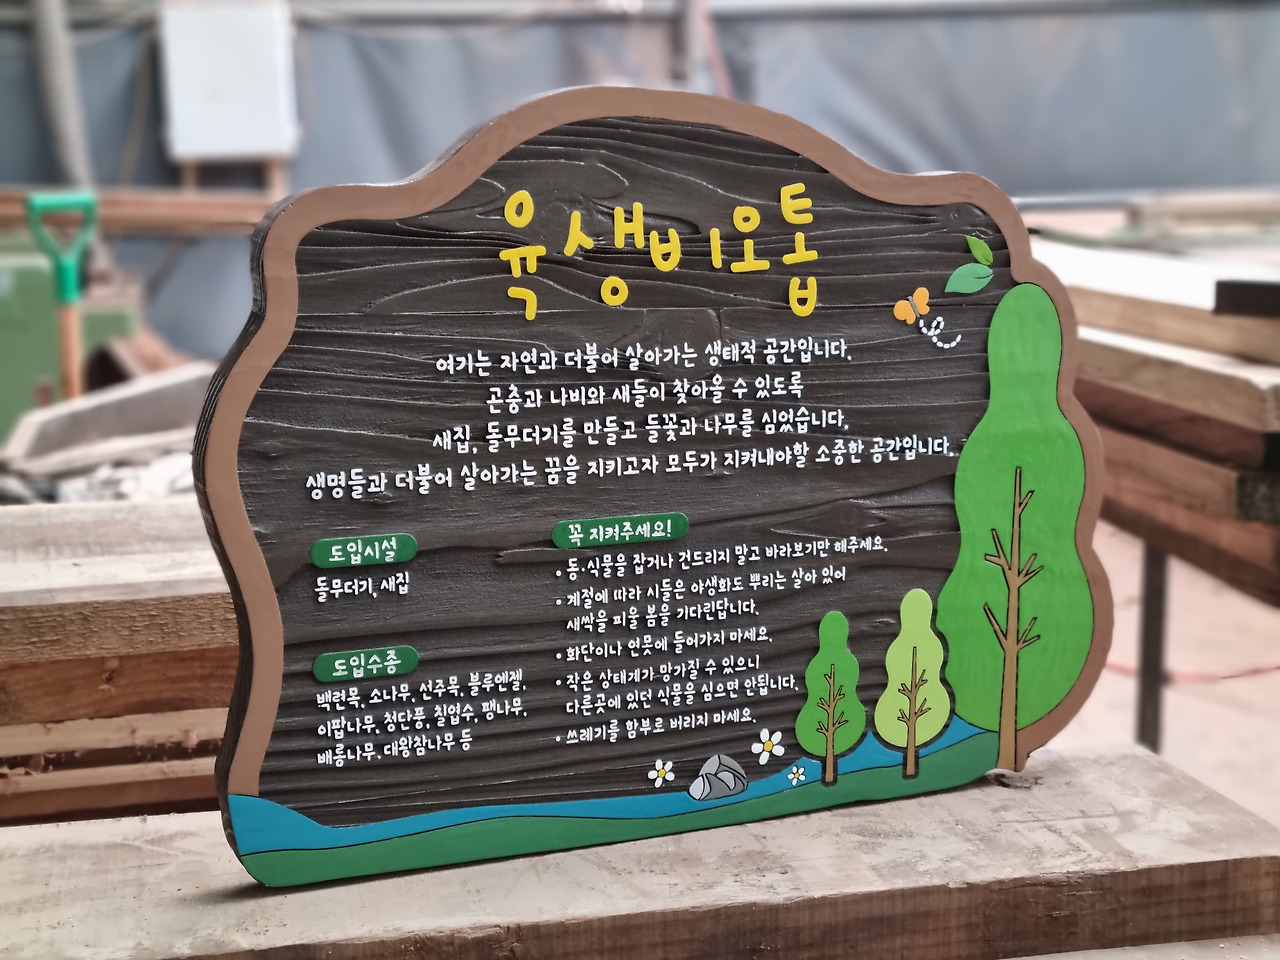 육생비오톱
여기는 자연과 더불어 살아가는 생태적 공간입니다.
곤충과 나비와 새들이 찾아올 수 있도록
새집, 돌무더기를 만들고 들꽃과 나무를 심었습니다.
생명들과 더불어 살아가는 꿈을 지키고자 모두가 지켜내야할 소중한 공간입니다.
도입시설
돌무더기, 새집
도입수종
백련목, 소나무, 선주목, 블루엔젤,
이팝나무, 청단풍, 칠엽수, 팽나무,
배롱나무, 대왕참나무 등
꼭 지켜주세요!
• 동·식물을 잡거나 건드리지 말고 바라보기만 해주세요.
• 계절에 따라 시들은 야생화도 뿌리는 살아 있어
새싹을 피울 봄을 기다린답니다.
• 화단이나 연못에 들어가지 마세요.
• 작은 상태계가 망가질 수 있으니
다른곳에 있던 식물을 심으면 안됩니다.
• 쓰레기를 함부로 버리지 마세요.